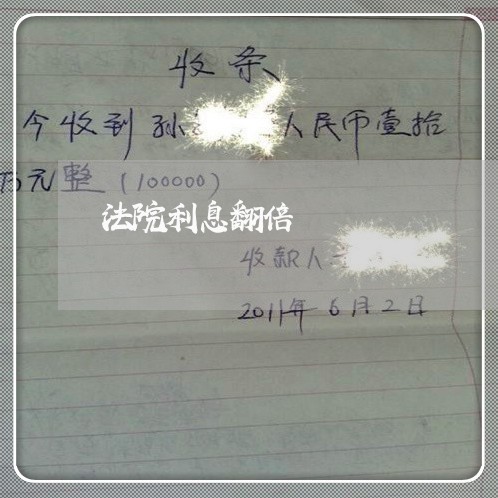 收条
今收到孙人民币壹拾
万元整（100000）
法院利息翻倍
收款人
2011年6月2日